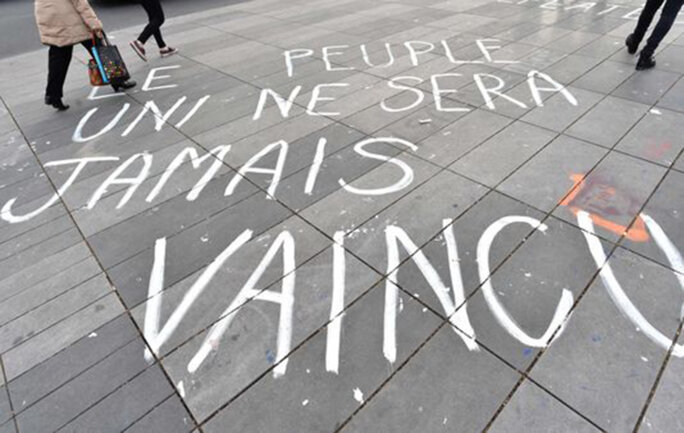 LE PEUPLE
UNI NE SERA
JAMAIS
VAINCU